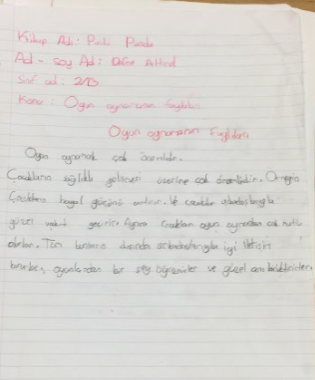 Kitap Adı: Pinti Panda
Ad - Soy Ad: Defne
Sınıf
Konu: Oyun oynamanın faydaları
Oyun oynamanın faydaları
Oyun oynamak çok önemlidir.
Çocukların sağlıklı gelişmesi üzerine çok önemlidir. Örneğin
Çocukların hayal gücünü Ve çocuklar arkadaşlarıyla
güzel vakit geçirir. Ayrıca çocukları oyun oynarken çok mutlu
olurlar. Tüm bunların dışında arkadaşlarıyla iyi iletişim
kurarlar, oyunlardan bir şey öğrenirler ve güzel anı biriktirirler.